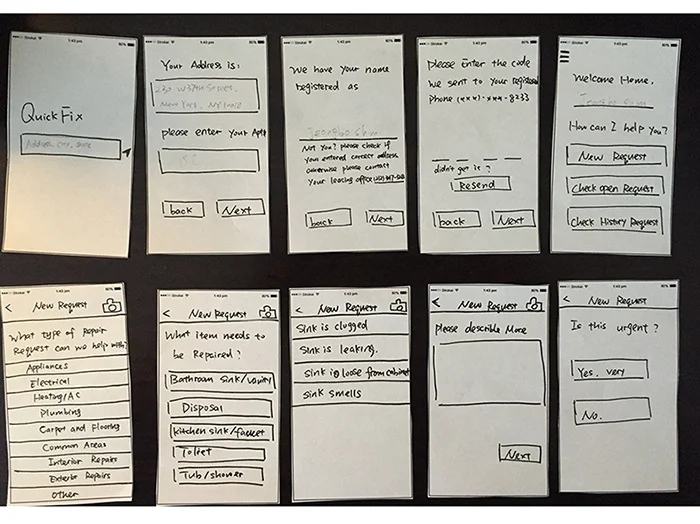 1:43 pm 80%
QuickFix
Address, city, state
1:43 pm 80%
Your Address is:
New York, NY
please enter your Apt#
back Next
1:43 pm 80%
We have your name
registered as
Not you? please check if
your entered correct address
otherwise please contact
your leasing office
back Next
1:43 pm 80%
please Enter the code
we sent to your registered
phone (xxx)-xxx-8233
didn't get it?
Resend
back Next
1:43 pm 80%
Welcome Home,
How can I help you?
New Request
Check open Request
Check History Request
1:43 pm 80%
< New Request
What type of Repair
Request can we help with?
Appliances
Electrical
Heating/AC
Plumbing
Carpet and Flooring
Common Areas
Interior Repairs
Exterior Repairs
Other
1:43 pm 80%
< New Request
What item needs to
be Repaired?
Bathroom sink/vanity
Disposal
kitchen sink/faucet
Toilet
Tub/shower
1:43 pm 80%
< New Request
Sink is clogged
Sink is leaking.
Sink is loose from cabinet
Sink smells
1:43 pm 80%
< New Request
Please describle More
Next
1:43 pm 80%
< New Request
Is this urgent?
Yes, very
No.